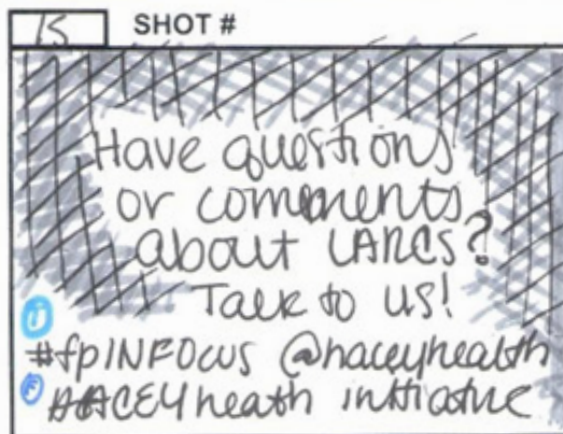 15 SHOT #
Have questions
or comments
about LARCS?
Talk to us!
#fpINFOcus @haceyhealth
HACEY heath initiative